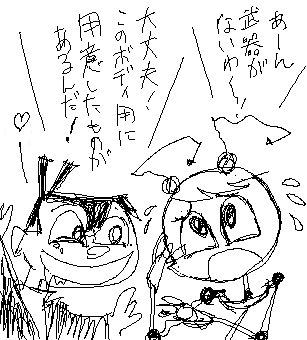 あーん
武器が
ないわ～!!
大丈夫!
このボディ用に
用意したものが
あるんだ!
♡